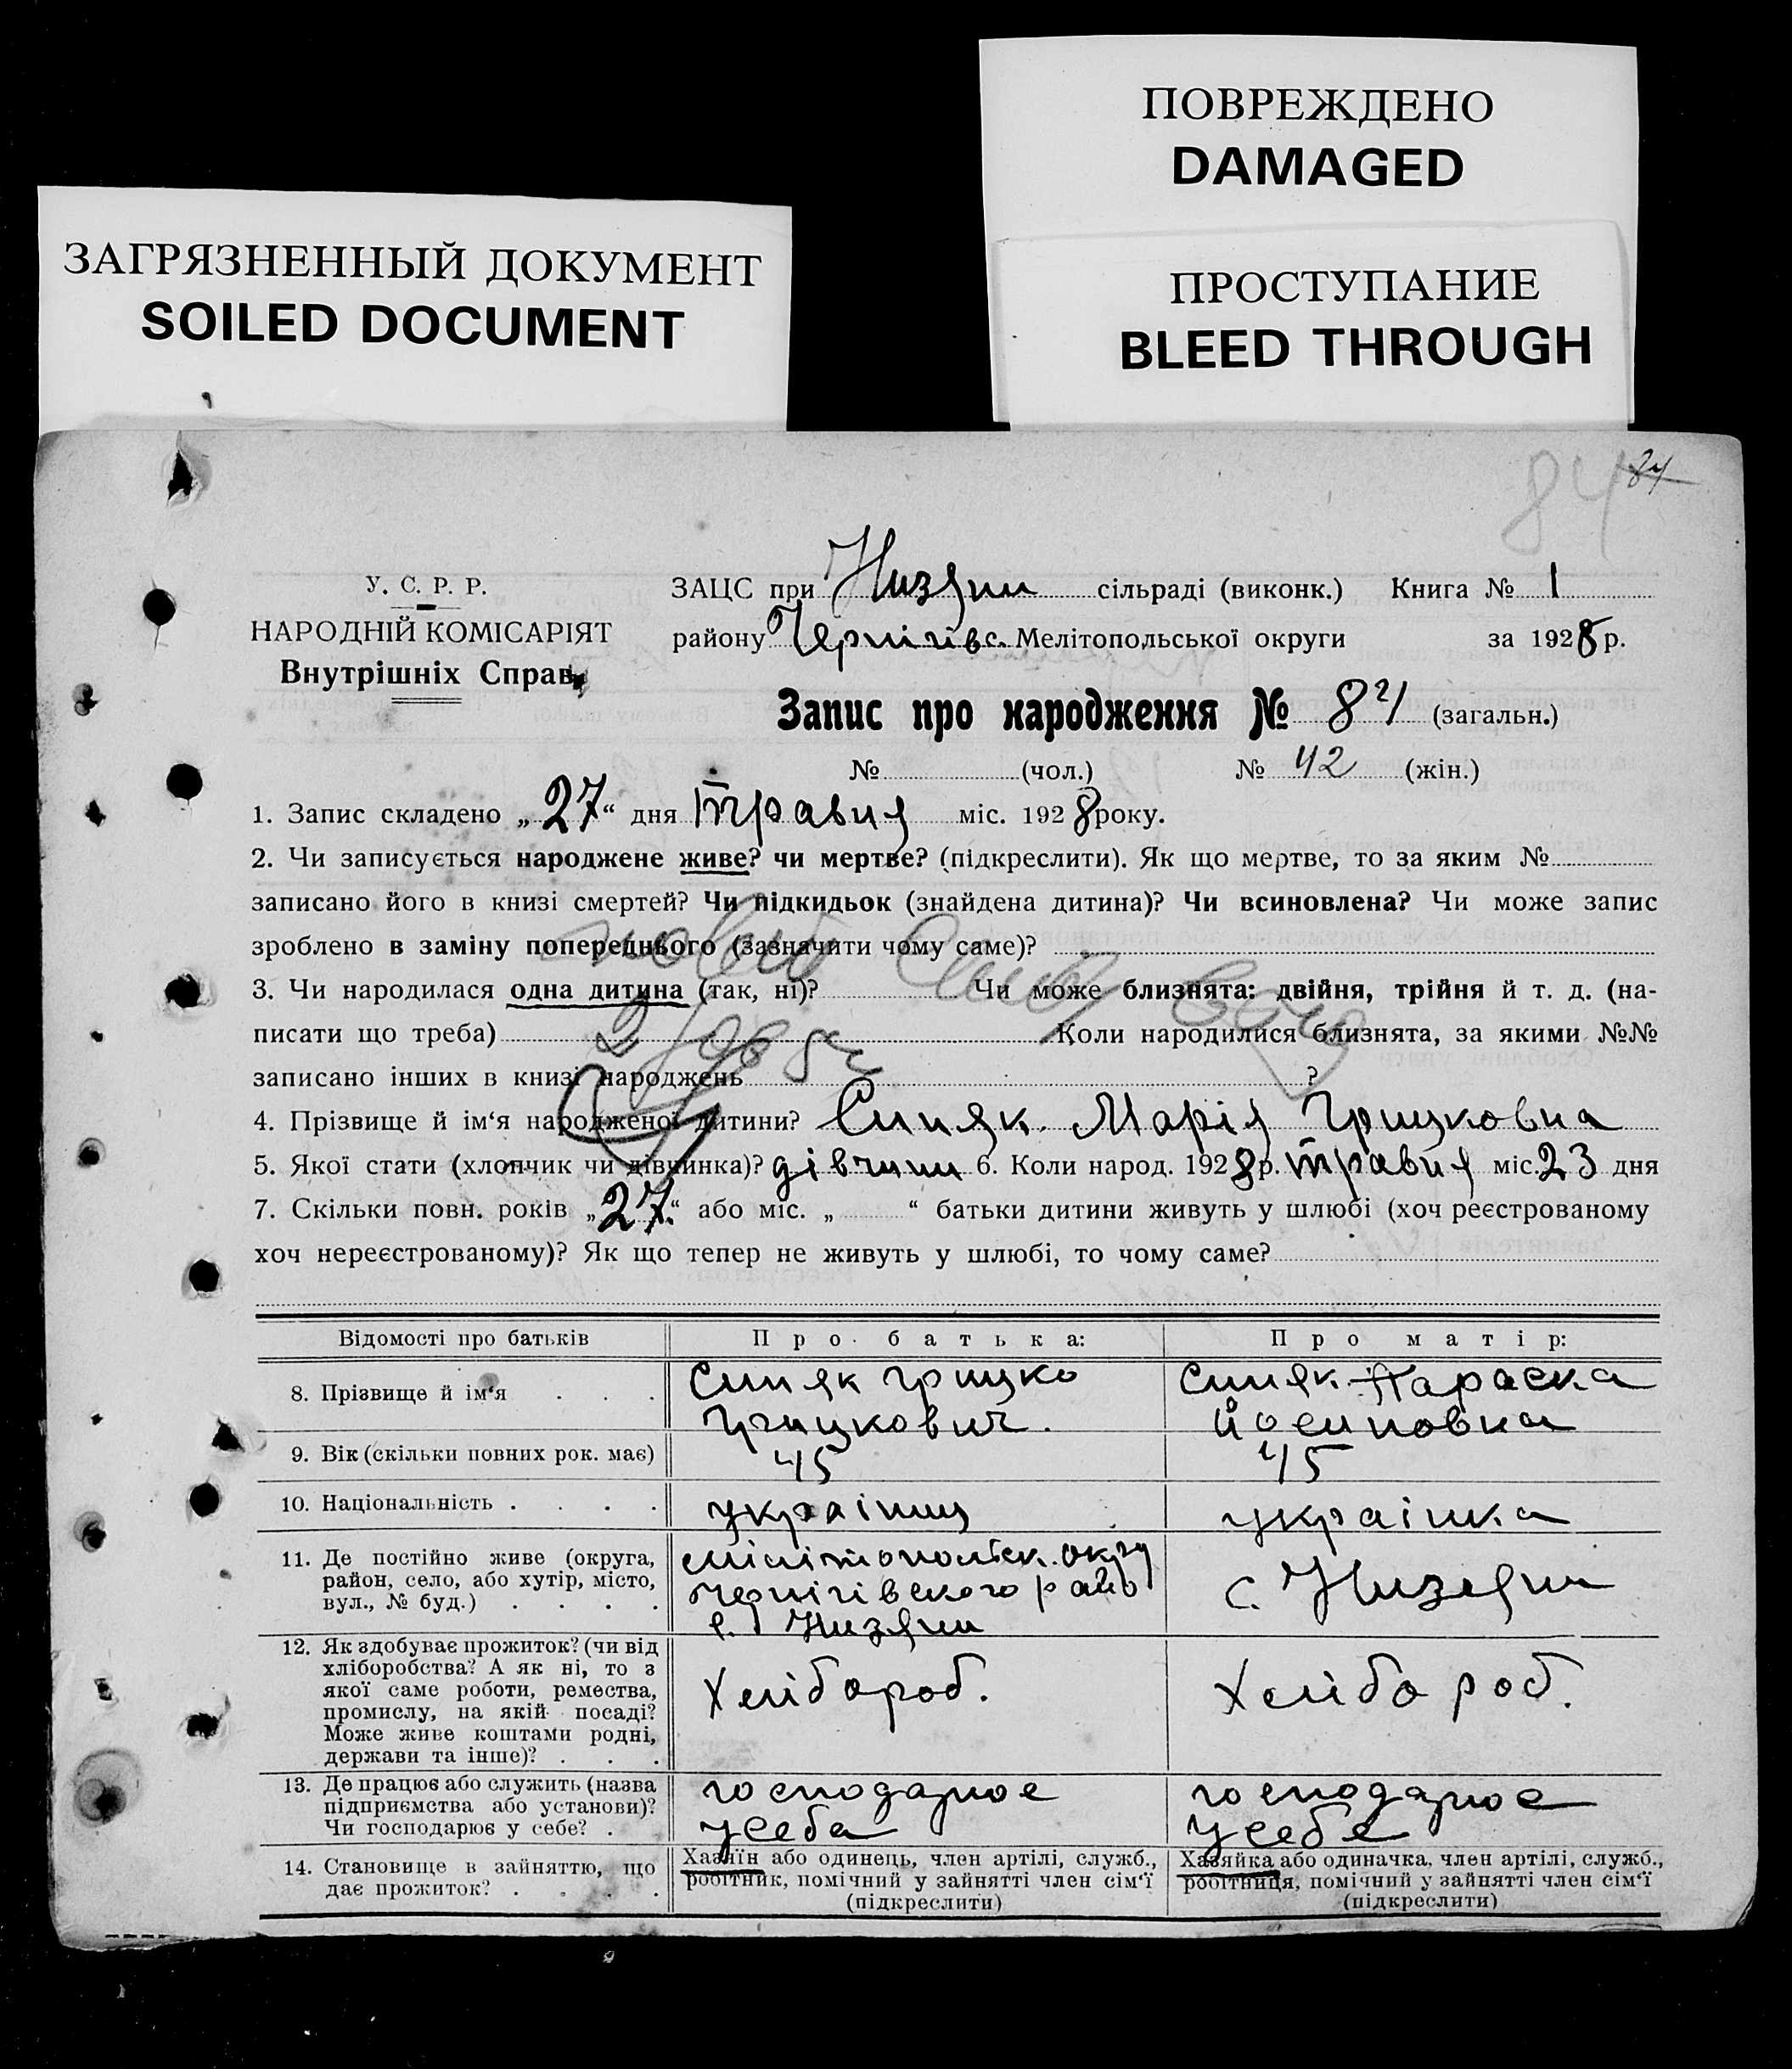 ПОВРЕЖДЕНО
DAMAGED
ЗАГРЯЗНЕННЫЙ ДОКУМЕНТ
SOILED DOCUMENT
ПРОСТУПАНИЕ
BLEED THROUGH
84 84
У. С. Р. Р.
НАРОДНІЙ КОМІСАРІЯТ
Внутрішніх Справ
ЗАЦС при Низяни сільраді (виконк.) Книга № 1
району Чернігівс. Мелітопольської округи за 1928 р.
Запис про народження № 84 (загальн.)
№ (чол.) № 42 (жін.)
1. Запис складено „27“ дня травня міс. 1928 року.
2. Чи записується народжене живе? чи мертве? (підкреслити). Як що мертве, то за яким №
записано його в книзі смертей? Чи підкидьок (знайдена дитина)? Чи всиновлена? Чи може запис
зроблено в заміну попереднього (зазначити чому саме)?
3. Чи народилася одна дитина (так, ні)? Чи може близнята: двійня, трійня й т. д. (на-
писати що треба) Коли народилися близнята, за якими №№
записано інших в книзі народжень ?
4. Прізвище й ім‘я народженої дитини? Синяк Марія Грицковна
5. Якої стати (хлопчик чи дівчинка)? дівчини 6. Коли народ. 1928 р. травня міс. 23 дня
7. Скільки повн. років „27“ або міс. „ “ батьки дитини живуть у шлюбі (хоч реєстрованому
хоч нереєстрованому)? Як що тепер не живуть у шлюбі, то чому саме?
Відомості про батьків Про батька: Про матір:
8. Прізвище й ім‘я Синяк Грицко Синяк Параска
Грицкович. Йосиповна
9. Вік (скільки повних рок. має) 45 45
10. Національність українц українка
11. Де постійно живе (округа, район, село, або хутір, місто, вул., № буд.)
Мілітопольск. окру
Чернігівского райо
с. Низяни
с. Низяни
12. Як здобуває прожиток? (чи від
хліборобства? А як ні, то з
якої саме роботи, ремества,
промислу, на якій посаді?
Може живе коштами родні,
держави та інше)?
Хлібороб. Хлібо роб.
13. Де працює або служить (назва
підприємства або установи)?
Чи господарює у себе?
господарює
у себа
господарює
у себе
14. Становище в зайняттю, що
дає прожиток?
Хазяїн або одинець, член артілі, служб.,
робітник, помічний у зайнятті член сім‘ї
(підкреслити)
Хазяйка або одиначка, член артілі, служб.,
робітниця, помічний у зайнятті член сім‘ї
(підкреслити)